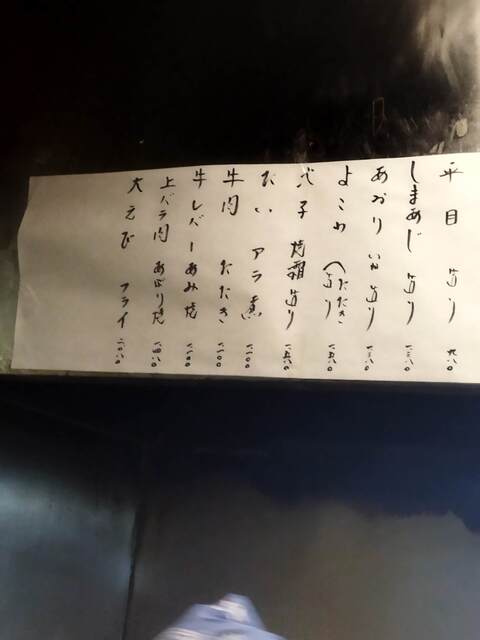 平目 造り 九八〇
しまあじ 造り 一三八〇
あおりいか 造り 一三八〇
よこわ (たたき 造り 一一八〇
焼霜造り 一六八〇
たい アラ煮 一一〇〇
牛肉 たたき 一一〇〇
牛レバーあみ焼 一一〇〇
上バラ肉 あぶり焼 一四八〇
大えび フライ 二〇八〇